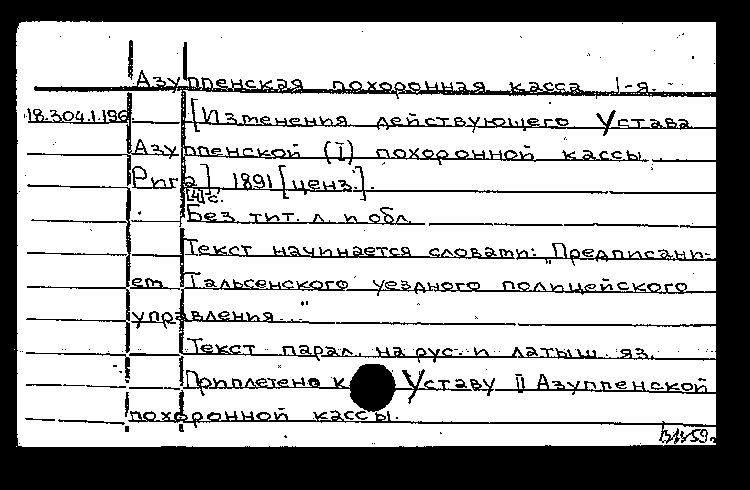 Азуппенская похоронная касса 1-я.
18.304.1.196
[Изменения действующего Устава
Азуппенской (I) похоронной кассы...
Рига], 1891 [ценз.].
[4] с.
Без тит. л. и обл.
Текст начинается словами: „Предписани-
ем Тальсенского уездного полицейского
управления..."
Текст парал. на рус. и латыш. яз.
Приплетено к Уставу II Азуппенской
похоронной кассы.